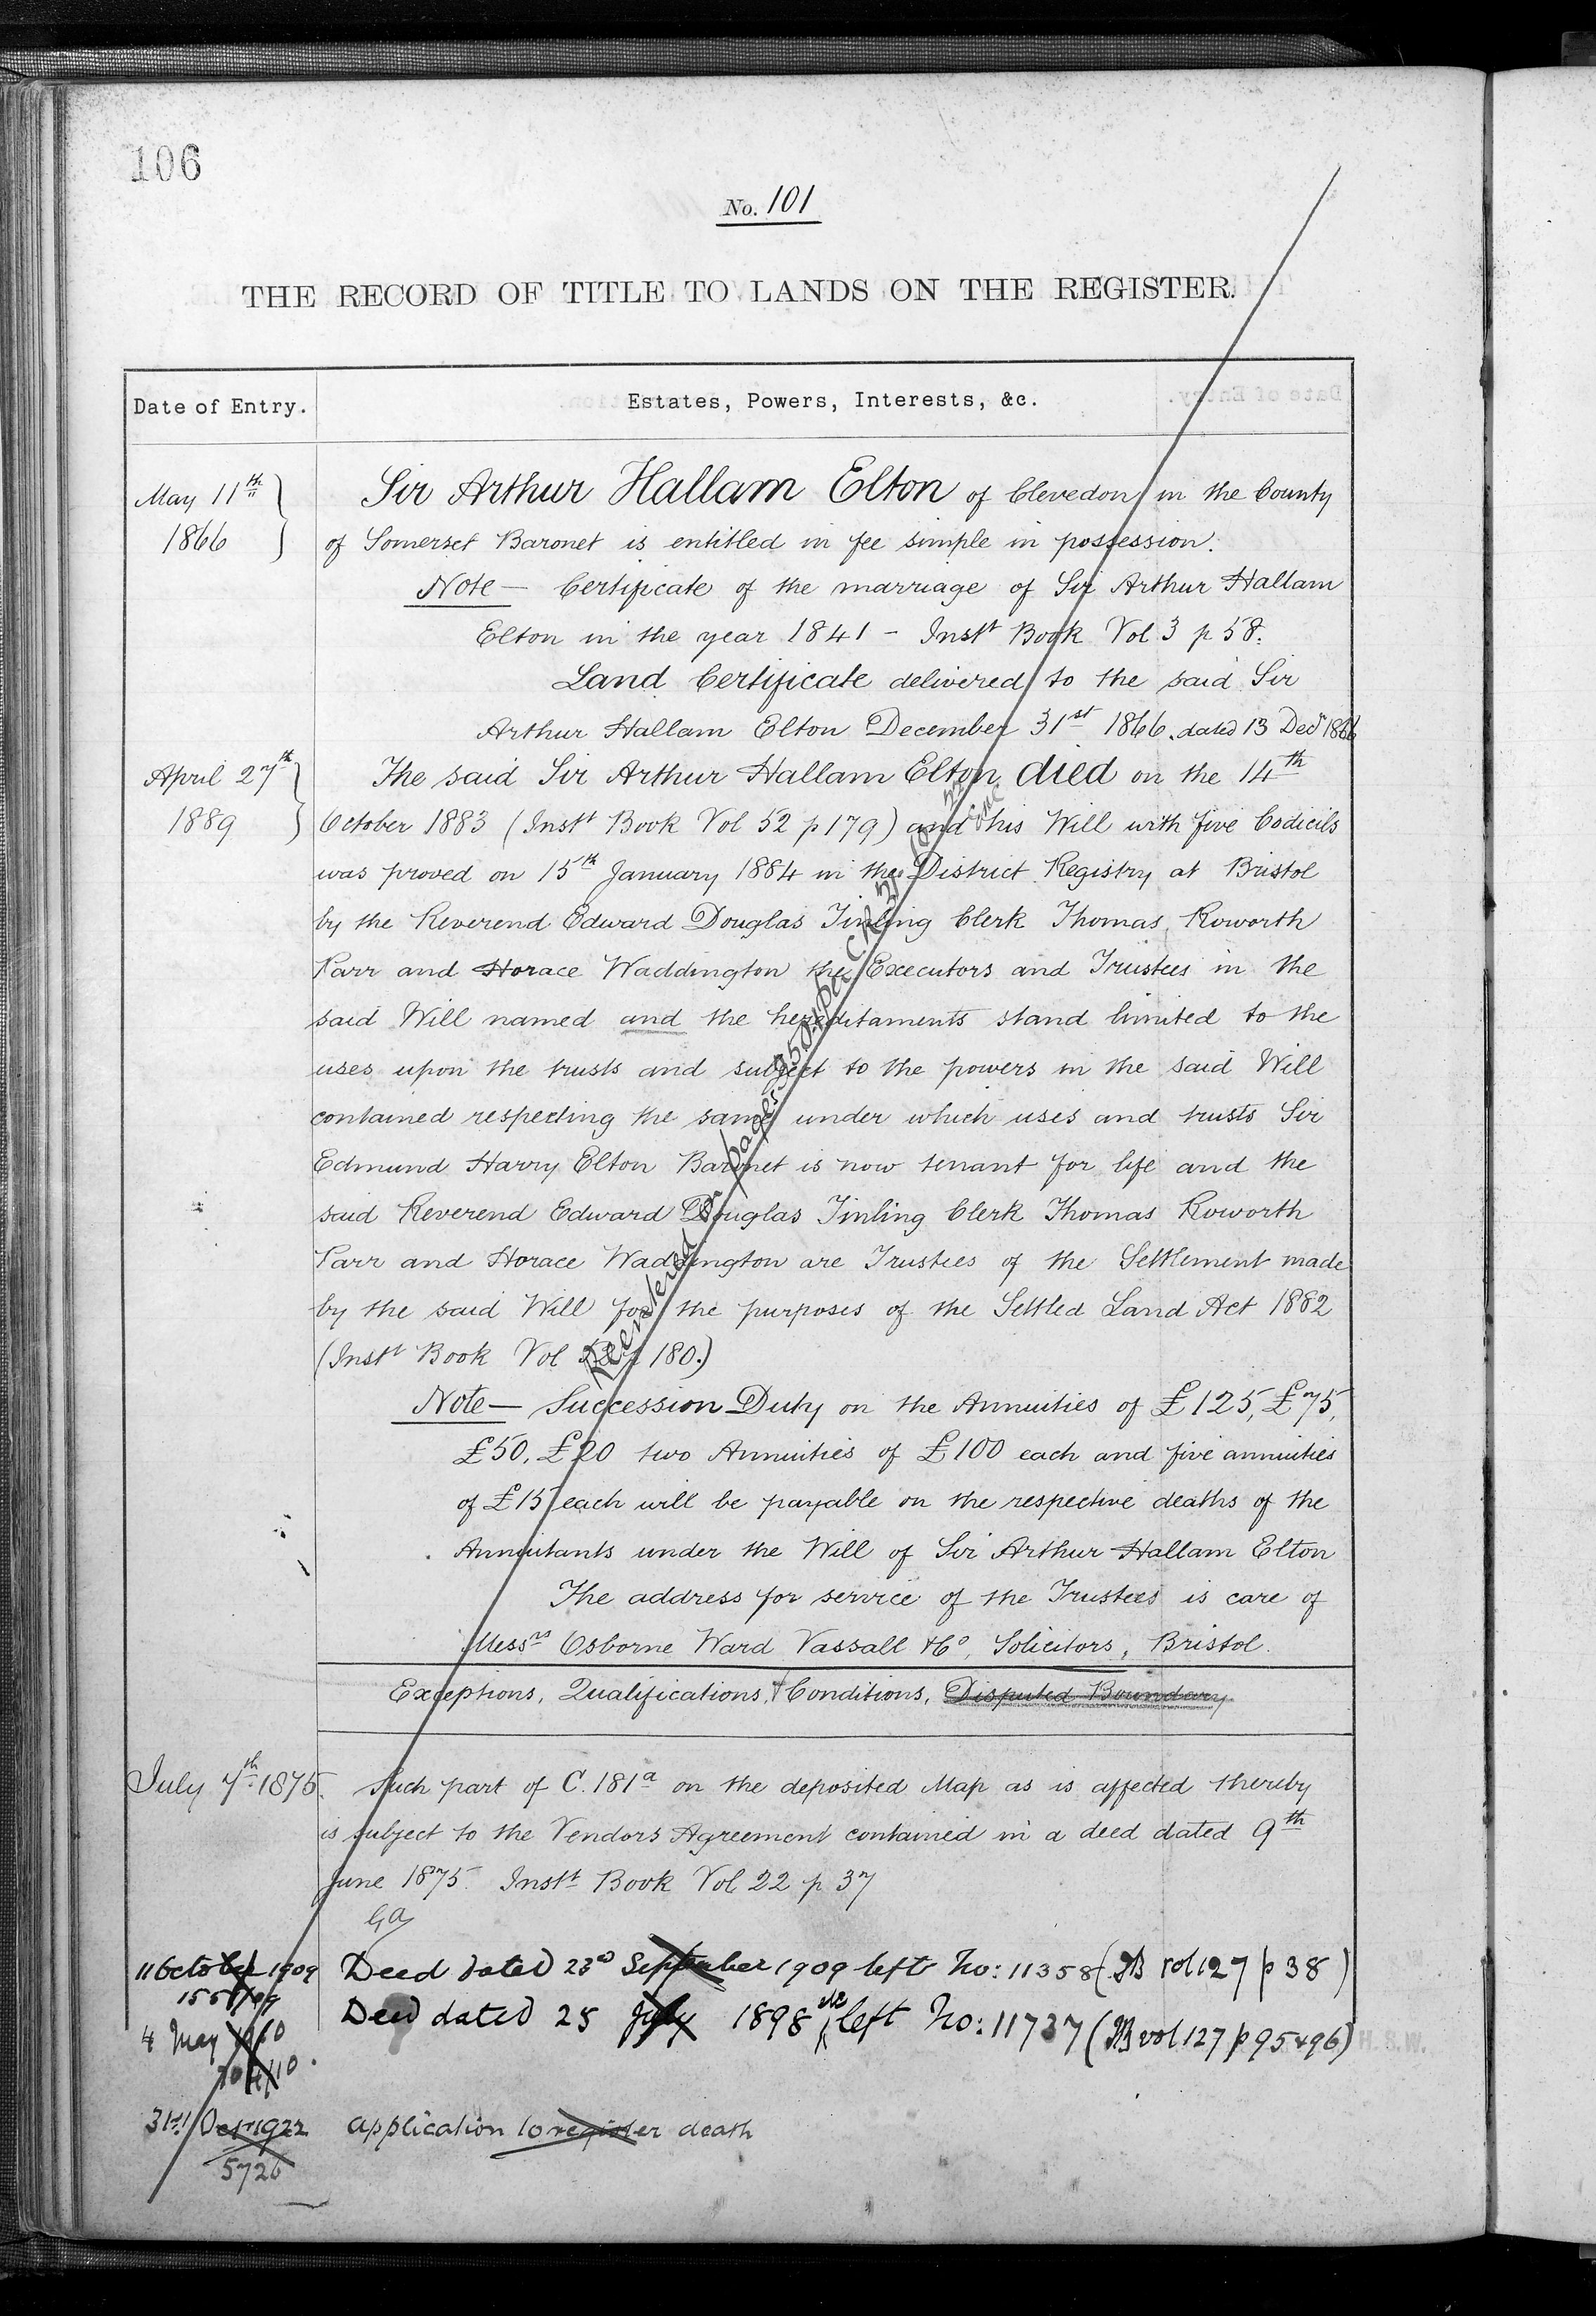 106
No. 101
THE RECORD OF TITLE TO LANDS ON THE REGISTER.
Date of Entry.
Estates, Powers, Interests, &c.
May 11th
1866
Sir Arthur Hallam Elton of Clevedon in the County
of Somerset Baronet is entitled in fee simple in possession.
Note — Certificate of the marriage of Sir Arthur Hallam
Elton in the year 1841 - Instt Book Vol 3 p 58.
Land Certificate delivered to the said Sir
Arthur Hallam Elton December 31st 1866. dated 13 Decr 1866
April 27th
1889
The said Sir Arthur Hallam Elton died on the 14th
October 1883 (Instt Book Vol 52 p 179) and his Will with five Codicils
was proved on 15th January 1884 in the District Registry at Bristol
by the Reverend Edward Douglas Tinling Clerk Thomas Roworth
Parr and Horace Waddington the Executors and Trustees in the
said Will named and the hereditaments stand limited to the
uses upon the trusts and subject to the powers in the said Will
contained respecting the same under which uses and trusts Sir
Edmund Harry Elton Baronet is now tenant for life and the
said Reverend Edward Douglas Tinling Clerk Thomas Roworth
Parr and Horace Waddington are Trustees of the Settlement made
by the said Will for the purposes of the Settled Land Act 1882
(Instt Book Vol 52 p 180.)
Note — Succession Duty on the Annuities of £125, £75,
£50, £20 two Annuities of £100 each and five annuities
of £15 each will be payable on the respective deaths of the
Annuitants under the Will of Sir Arthur Hallam Elton
The address for service of the Trustees is care of
Messrs Osborne Ward Vassall & Co, Solicitors, Bristol.
Exceptions, Qualifications, & Conditions, Disputed Boundary
July 7th 1875.
Such part of C. 181a on the deposited Map as is affected thereby
is subject to the Vendors Agreement contained in a deed dated 9th
June 1875. Instt Book Vol 22 p 37
11 October 1909
Deed dated 23d September 1909 left No: 11358 (IB vol 127 p 38)
4 May 1910
Deed dated 25 July 1898 &c left No: 11737 (IB vol 127 p 95 & 96)
31st Oct 1922
application to register death
5726